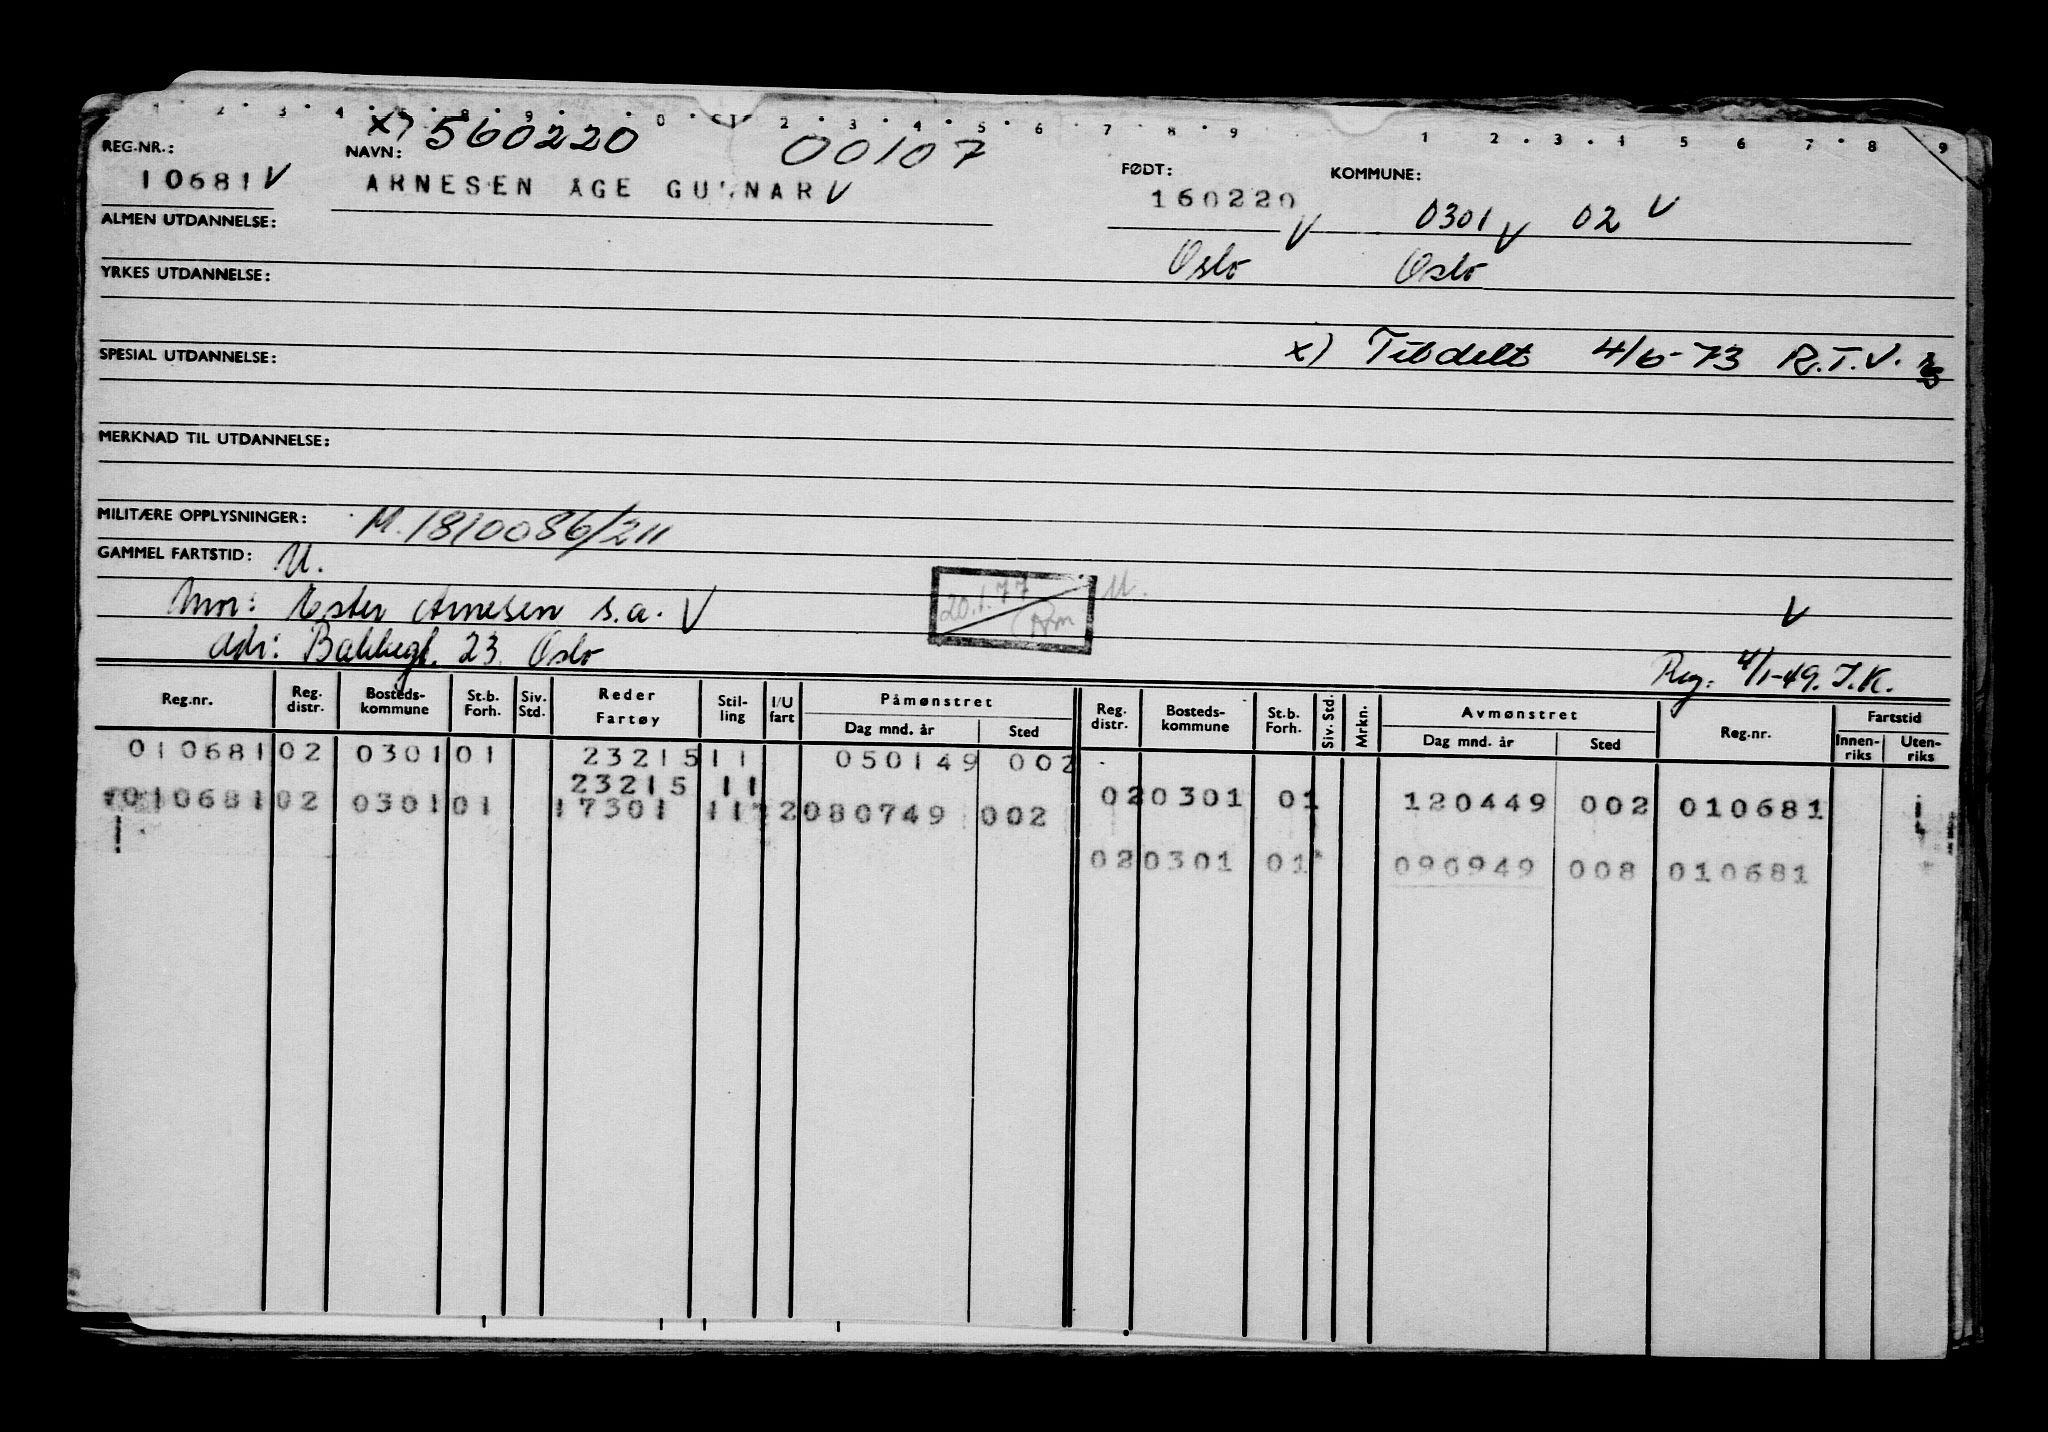 1 2 3 4 5 8 9 0 2 3 4 5 6 7 8 9 1 2 3 4 5 6 7 8 9
x) 560220 00107
REG.NR.: NAVN: FØDT: KOMMUNE:
10681 V ARNESEN ÅGE GUNNAR V 160220 V 0301 V 02 V
ALMEN UTDANNELSE:
Oslo Oslo
YRKES UTDANNELSE:
x) Tildelt 4/6-73 R.T.V.
SPESIAL UTDANNELSE:
MERKNAD TIL UTDANNELSE:
MILITÆRE OPPLYSNINGER: M.1810086/211
GAMMEL FARTSTID: U.
20.1.77 U.
Mor: Ester Arnesen s.a. V V
Adr: Bakkegt. 23 Oslo
Reg: 4/1-49. I.K.
Reg.nr. Reg. distr. Bosteds- kommune St.b. Forh. Siv. Std. Reder Fartøy Stil- ling I/U fart Påmønstret Dag mnd. år Sted Reg. distr. Bosteds- kommune St.b. Forh. Siv. Std. Mrkn. Avmønstret Dag mnd. år Sted Reg.nr. Fartstid Innen- riks Uten- riks
010681 02 0301 01 23215 11 050149 002
23215 11 02 0301 01 120449 002 010681
010681 02 0301 01 17301 11 2 080749 002
02 0301 01 090949 008 010681